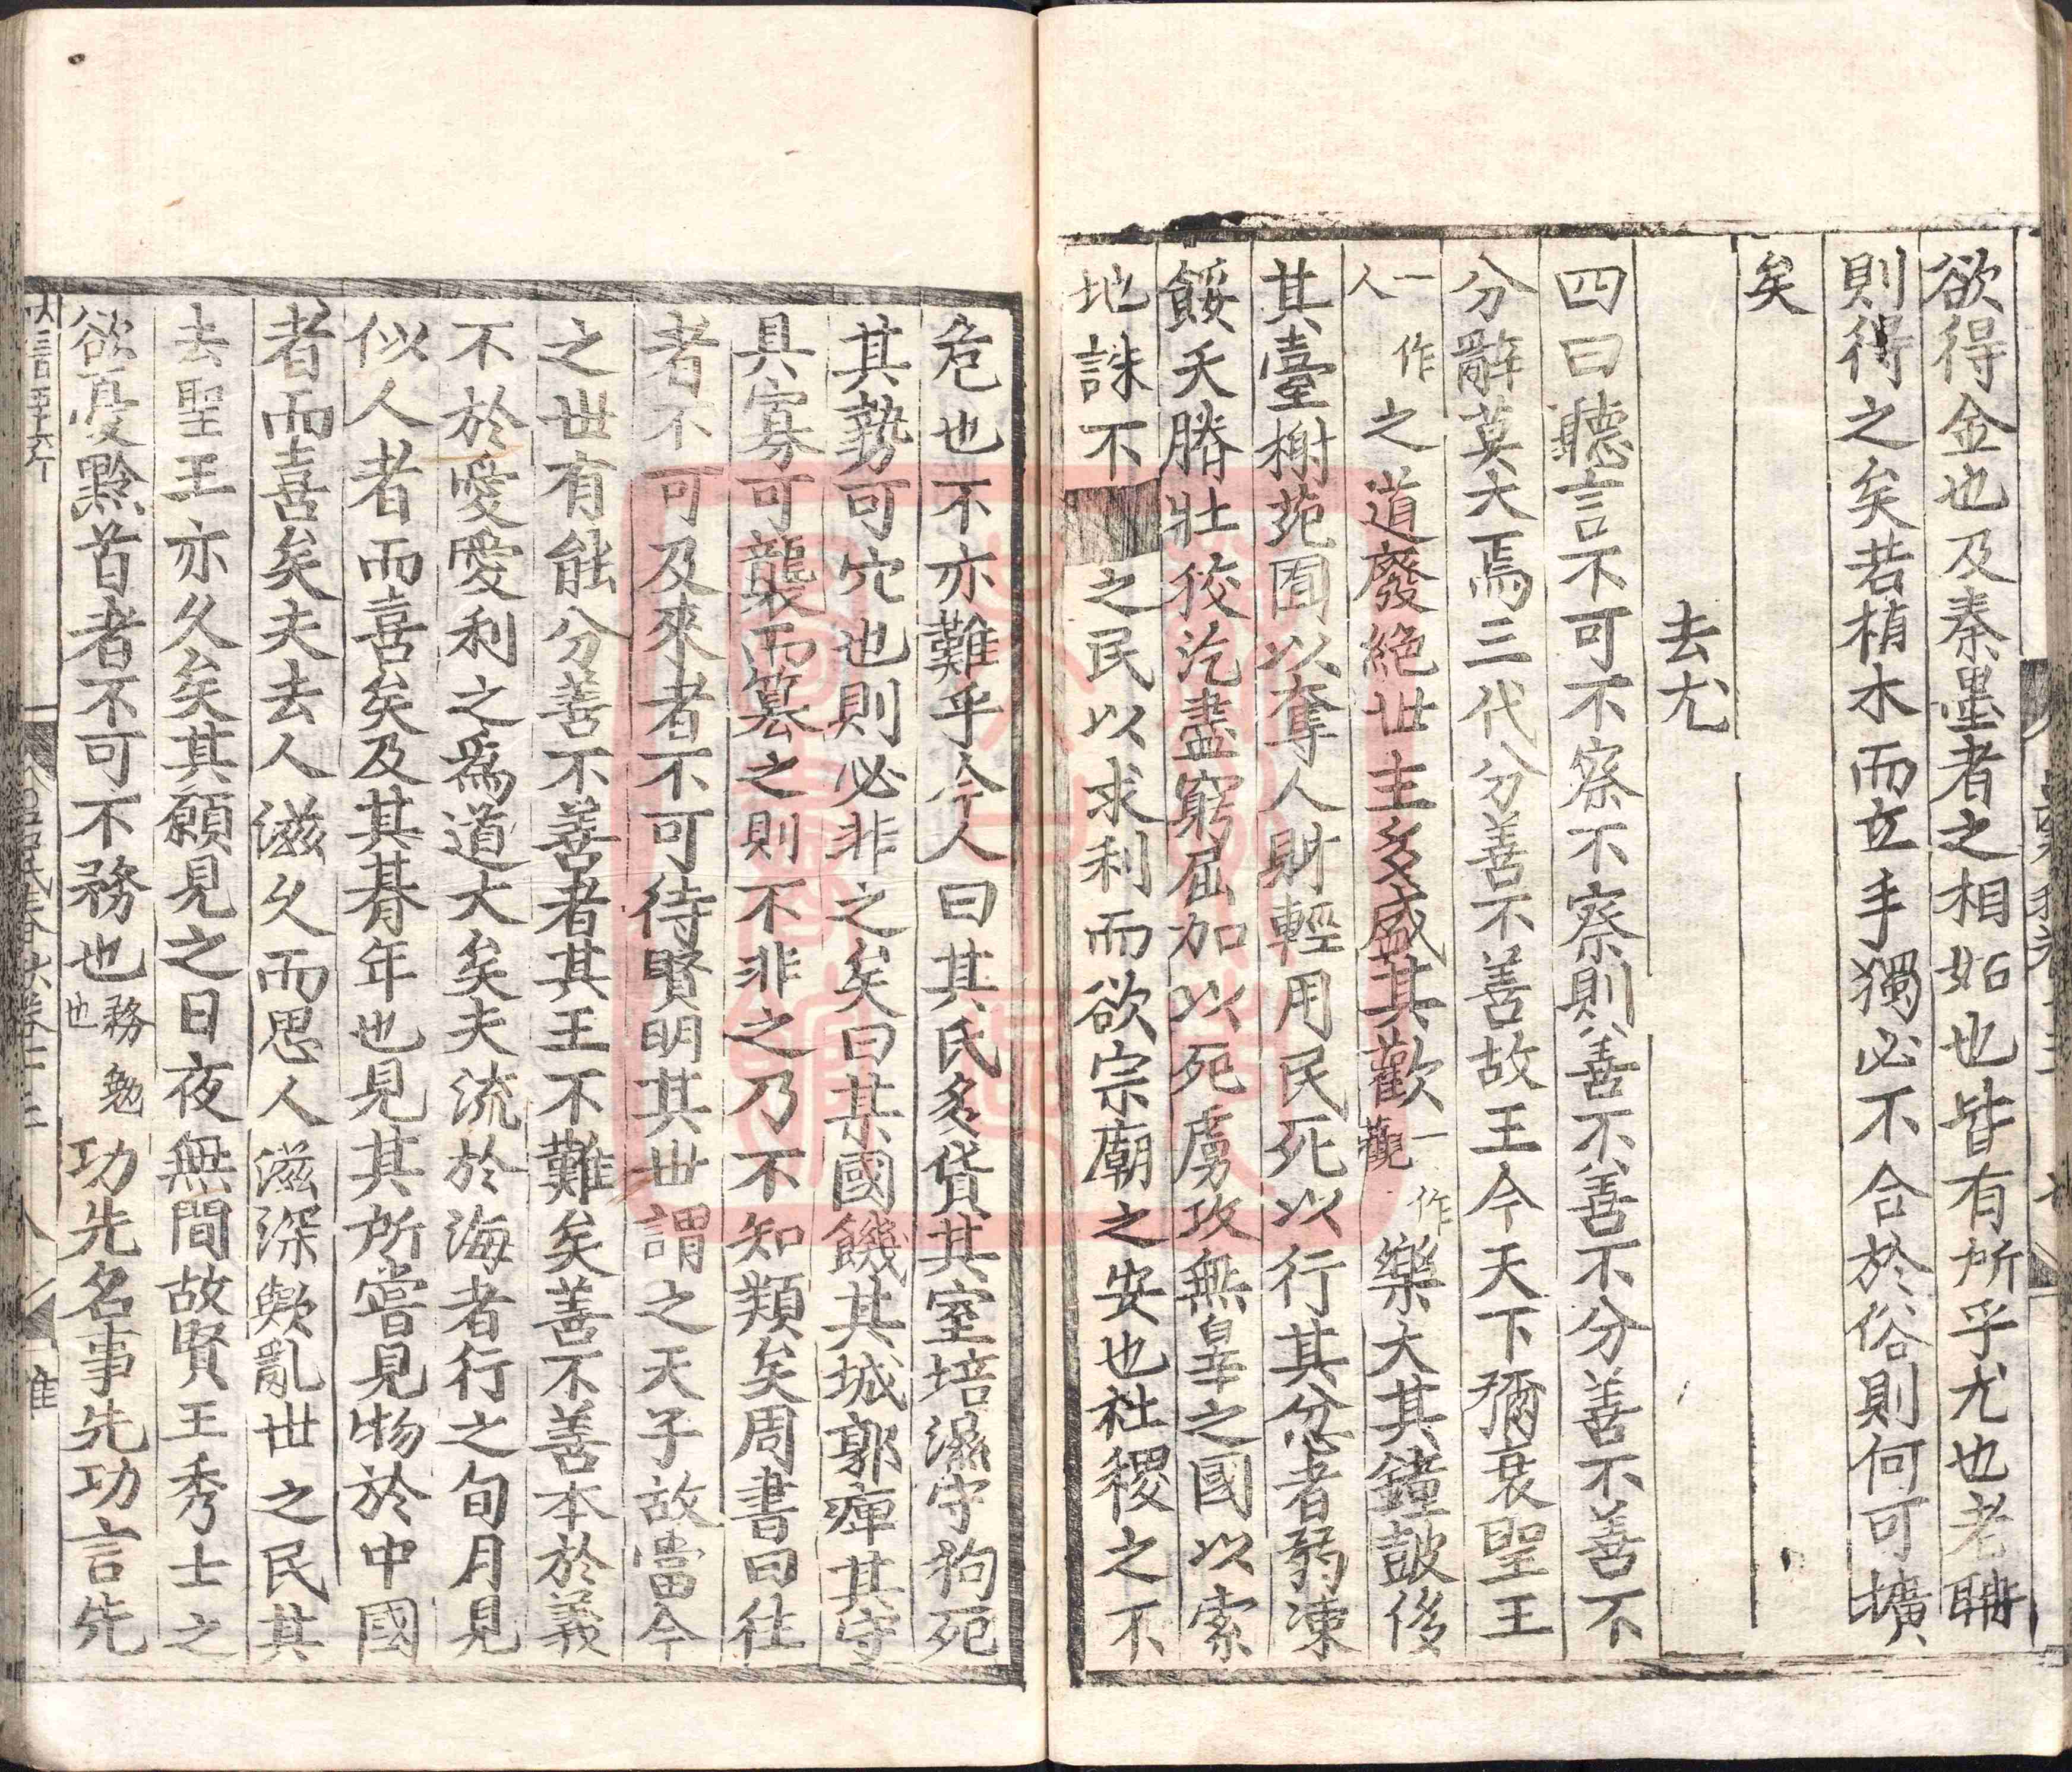 欲得金也及秦墨者之相妬也皆有所乎尤也老聃
則得之矣若植木而立乎獨必不合於俗則何可擴
矣
去尤
四曰聽言不可不察不察則善不善不分善不善不
分辭莫大焉三代分善不善故王今天下彌衰聖王
一作人之道廢絶世主多盛其歡一作觀樂大其鐘鼓侈
其臺榭苑囿以奪人財輕用民死以行其忿者弱凍
餒夭膌壯狡汔盡窮屈加以死虜攻無辠之國以索
地誅不之民以求利而欲宗廟之安也社稷之不
危也不亦難乎今人曰其氏多貨其室培濕守狗死
其勢可穴也則必非之矣曰某國饑其城郭痺其守
具寡可襲而簒之則不非之乃不知類矣周書曰往
者不可及來者不可待賢明其世謂之天子故當今
之世有能分善不善者其王不難矣善不善本於義
不於愛愛利之爲道大矣夫流於海者行之旬月見
似人者而喜矣及其朞年也見其所嘗見物於中國
者而喜矣夫去人滋久而思人滋深歟亂世之民其
去聖王亦久矣其願見之日夜無間故賢王秀士之
欲憂黔首者不可不務也務勉也功先名事先功言先